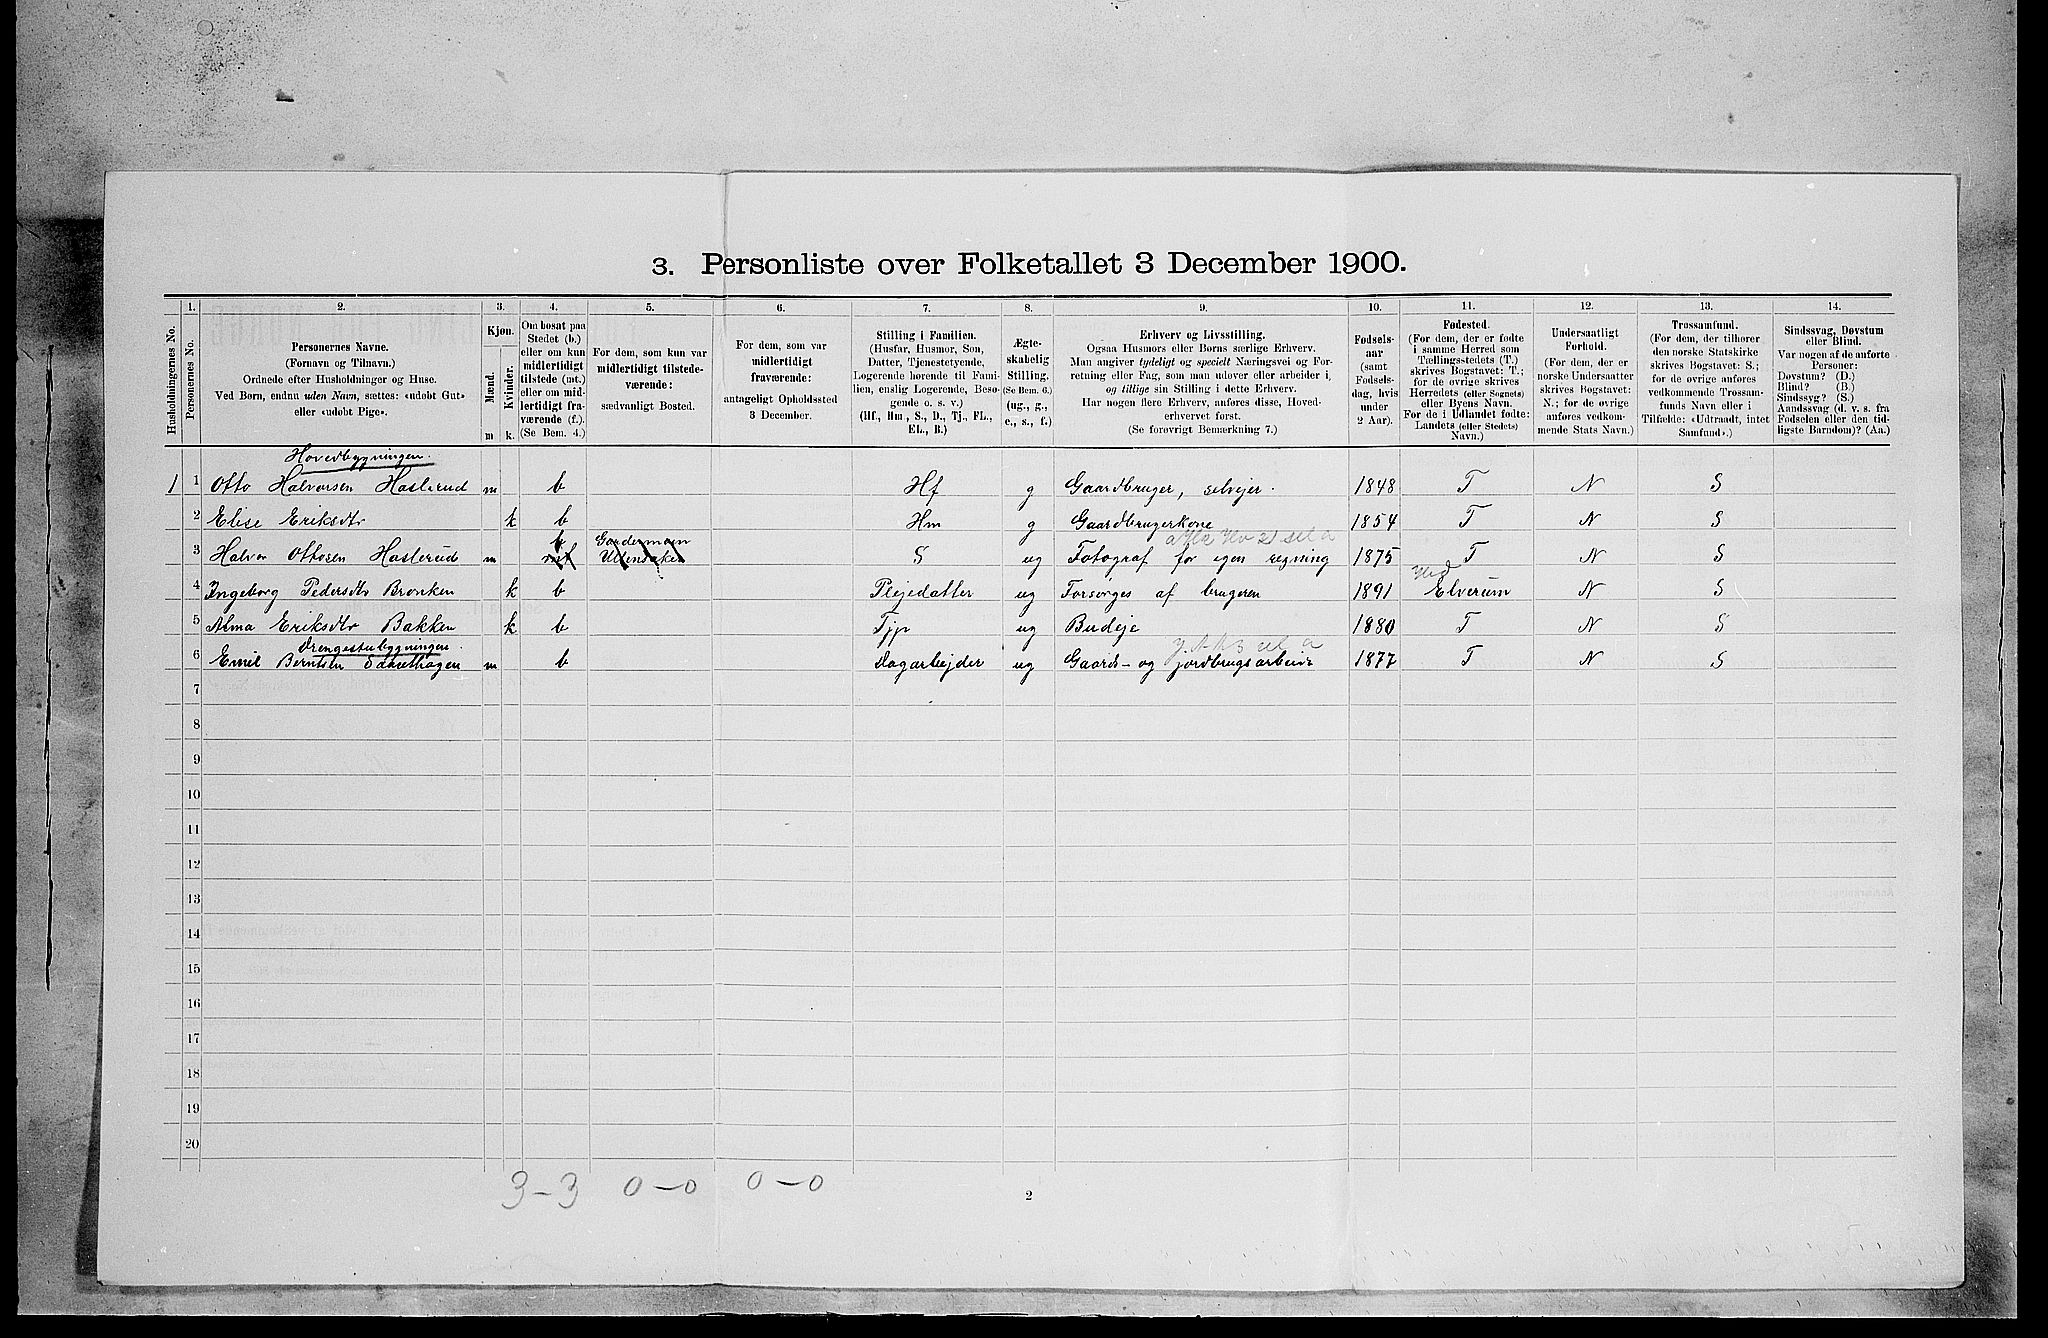 3. Personliste over Folketallet 3 December 1900.
Husholdningernes No.
1.
Personernes No.
2.
Personernes Navne.
(Fornavn og Tilnavn.)
Ordnede efter Husholdninger og Huse.
Ved Børn, endnu uden Navn, sættes: «udøbt Gut»
eller «udøbt Pige».
3.
Kjøn.
Mænd.
Kvinder.
m
k.
4.
Om bosat paa
Stedet (b.)
eller om kun
midlertidigt
tilstede (mt.)
eller om mid-
lertidigt fra-
værende (f.).
(Se Bem. 4.)
5.
For dem, som kun var
midlertidigt tilstede-
værende:
sædvanligt Bosted.
6.
For dem, som var
midlertidigt
fraværende:
antageligt Opholdssted
3 December.
7.
Stilling i Familien.
(Husfar, Husmor, Søn,
Datter, Tjenestetyende,
Logerende hørende til Fami-
lien, enslig Logerende, Besø-
gende o. s. v.)
(Hf., Hm., S., D., Tj., FL.,
EL., B.)
8.
Ægte-
skabelig
Stilling.
(Se Bem. 6.)
(ug., g.,
e., s., f.)
9.
Erhverv og Livsstilling.
Ogsaa Husmors eller Børns særlige Erhverv.
Man angiver tydeligt og specielt Næringsvei og For-
retning eller Fag, som man udøver eller arbeider i,
og tillige sin Stilling i dette Erhverv.
Har nogen flere Erhverv, anføres disse, Hoved-
erhvervet først.
(Se forøvrigt Bemærkning 7.)
10.
Fødsels-
aar
(samt
Fødsels-
dag, hvis
under
2 Aar).
11.
Fødested.
(For dem, der er fødte
i samme Herred som
Tællingsstedets (T.)
skrives Bogstavet: T.;
for de øvrige skrives
Herredets (eller Sognets)
eller Byens Navn.
For de i Udlandet fødte:
Landets (eller Stedets)
Navn.)
12.
Undersaatligt
Forhold.
(For dem, der er
norske Undersaatter
skrives Bogstavet:
N.; for de øvrige
anføres vedkom-
mende Stats Navn.)
13.
Trossamfund.
(For dem, der tilhører
den norske Statskirke
skrives Bogstavet: S.;
for de øvrige anføres
vedkommende Trossam-
funds Navn eller i
Tilfælde: «Udtraadt, intet
Samfund».)
14.
Sindssvag, Døvstum
eller Blind.
Var nogen af de anførte
Personer:
Døvstum? (D.)
Blind? (B.)
Sindssyg? (S.)
Aandssvag (d. v. s. fra
Fødselen eller den tid-
ligste Barndom)? (Aa.)
Hovedbygningen.
1 1 Otto Halvorsen Haslerud m b Hf g Gaardbruger, selvejer. 1848 T N S
2 Elise Eriksdtr k b Hm g Gaardbrugerkone 1854 T N S
b Gardermoen
3 Halvor Ottosen Haslerud m mt Ullensaker S ug Fotograf for egen regning 1875 T N S
Hed
4 Ingeborg Pedersdtr Bronken k b Plejedatter ug Forsørges af brugeren 1891 Elverum N S
5 Alma Eriksdtr Bakken k b Tjp ug Budeje 1880 T N S
Drengestubygningen.
6 Emil Berntsen m b Dagarbejder ug Gaards- og jordbrugsarbeide 1877 T N S
7
8
9
10
11
12
13
14
15
16
17
18
19
20
3–3 0–0 0–0
2